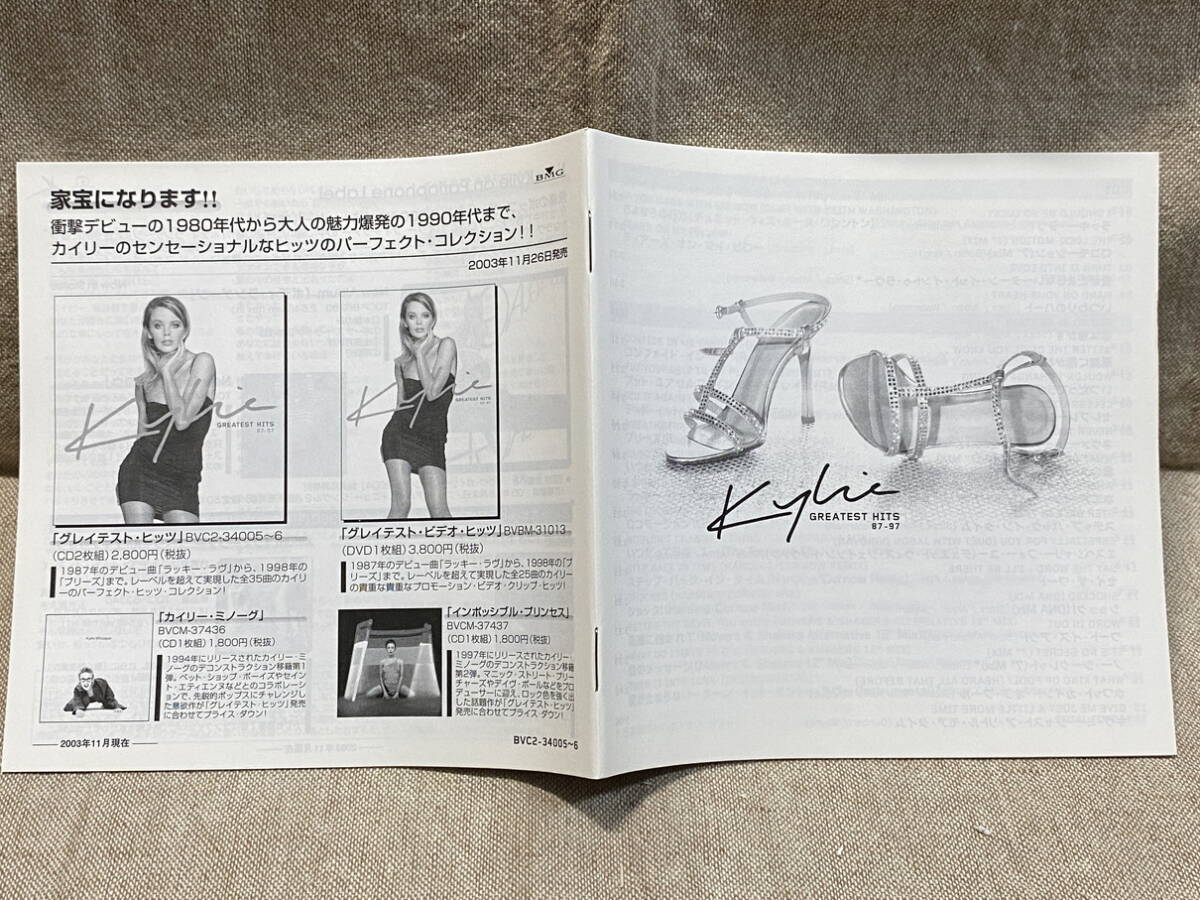 家宝になります!!
BMG
衝撃デビューの1980年代から大人の魅力爆発の1990年代まで、
カイリーのセンセーショナルなヒッツのパーフェクト・コレクション!!
2003年11月26日発売
Kylie
GREATEST HITS
87-97
Kylie
GREATEST HITS
87-97
「グレイテスト・ヒッツ」BVC2-34005~6
(CD2枚組)2,800円(税抜)
1987年のデビュー曲「ラッキー・ラヴ」から、1998年の
「ブリーズ」まで。レーベルを超えて実現した全35曲のカイリ
ーのパーフェクト・ヒッツ・コレクション!
「グレイテスト・ビデオ・ヒッツ」BVBM-31013
(DVD1枚組)3,800円(税抜)
1987年のデビュー曲「ラッキー・ラヴ」から、1998年の「ブ
リーズ」まで。レーベルを超えて実現した全25曲のカイリー
の貴重な貴重なプロモーション・ビデオ・クリップ・ヒッツ!
「カイリー・ミノーグ」
BVCM-37436
(CD1枚組)1,800円(税抜)
1994年にリリースされたカイリー・ミ
ノーグのデコンストラクション移籍第1
弾。ペット・ショップ・ボーイズやセイン
ト・エティエンヌなどとのコラボレーショ
ンで、先鋭的ポップスにチャレンジし
た意欲作が「グレイテスト・ヒッツ」発売
に合わせてプライス・ダウン!
「インポッシブル・プリンセス」
BVCM-37437
(CD1枚組)1,800円(税抜)
1997年にリリースされたカイリー・
ミノーグのデコンストラクション移籍
第2弾。マニック・ストリート・プリー
チャーズやデイヴ・ボールなどをプロ
デューサーに迎え、ロック色を強く出
した話題作が「グレイテスト・ヒッツ」
発売に合わせてプライス・ダウン!
2003年11月現在
BVC2-34005~6
Kylie
GREATEST HITS
87-97